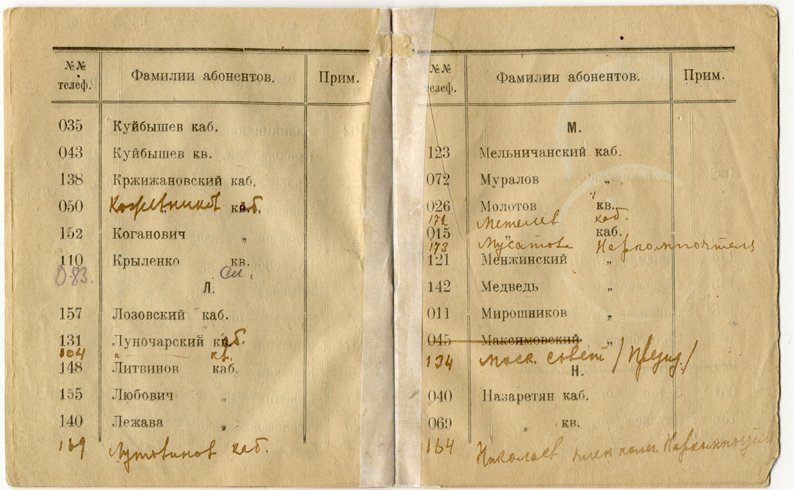 №№ телеф. Фамилии абонентов. Прим.
035 Куйбышев каб.
043 Куйбышев кв.
138 Кржижановский каб.
050 Кожевников каб.
152 Коганович „
110 Крыленко кв.
083. Сл.
Л.
157 Лозовский каб.
131 Луночарский каб.
104 " кв.
148 Литвинов каб.
155 Любович „
140 Лежава „
169 Лутовинов каб.
№№ телеф. Фамилии абонентов. Прим.
М.
123 Мельничанский каб.
072 Муралов „
026 Молотов кв.
172 Метелев каб.
015 „ каб.
173 Мусатова Наркомпочтель
121 Менжинский „
142 Медведь „
011 Мирошников „
045 Максимовский „
134 Моск. совет /Презид./
Н.
040 Назаретян каб.
069 „ кв.
164 Николаев член колл. Наркомпочтель